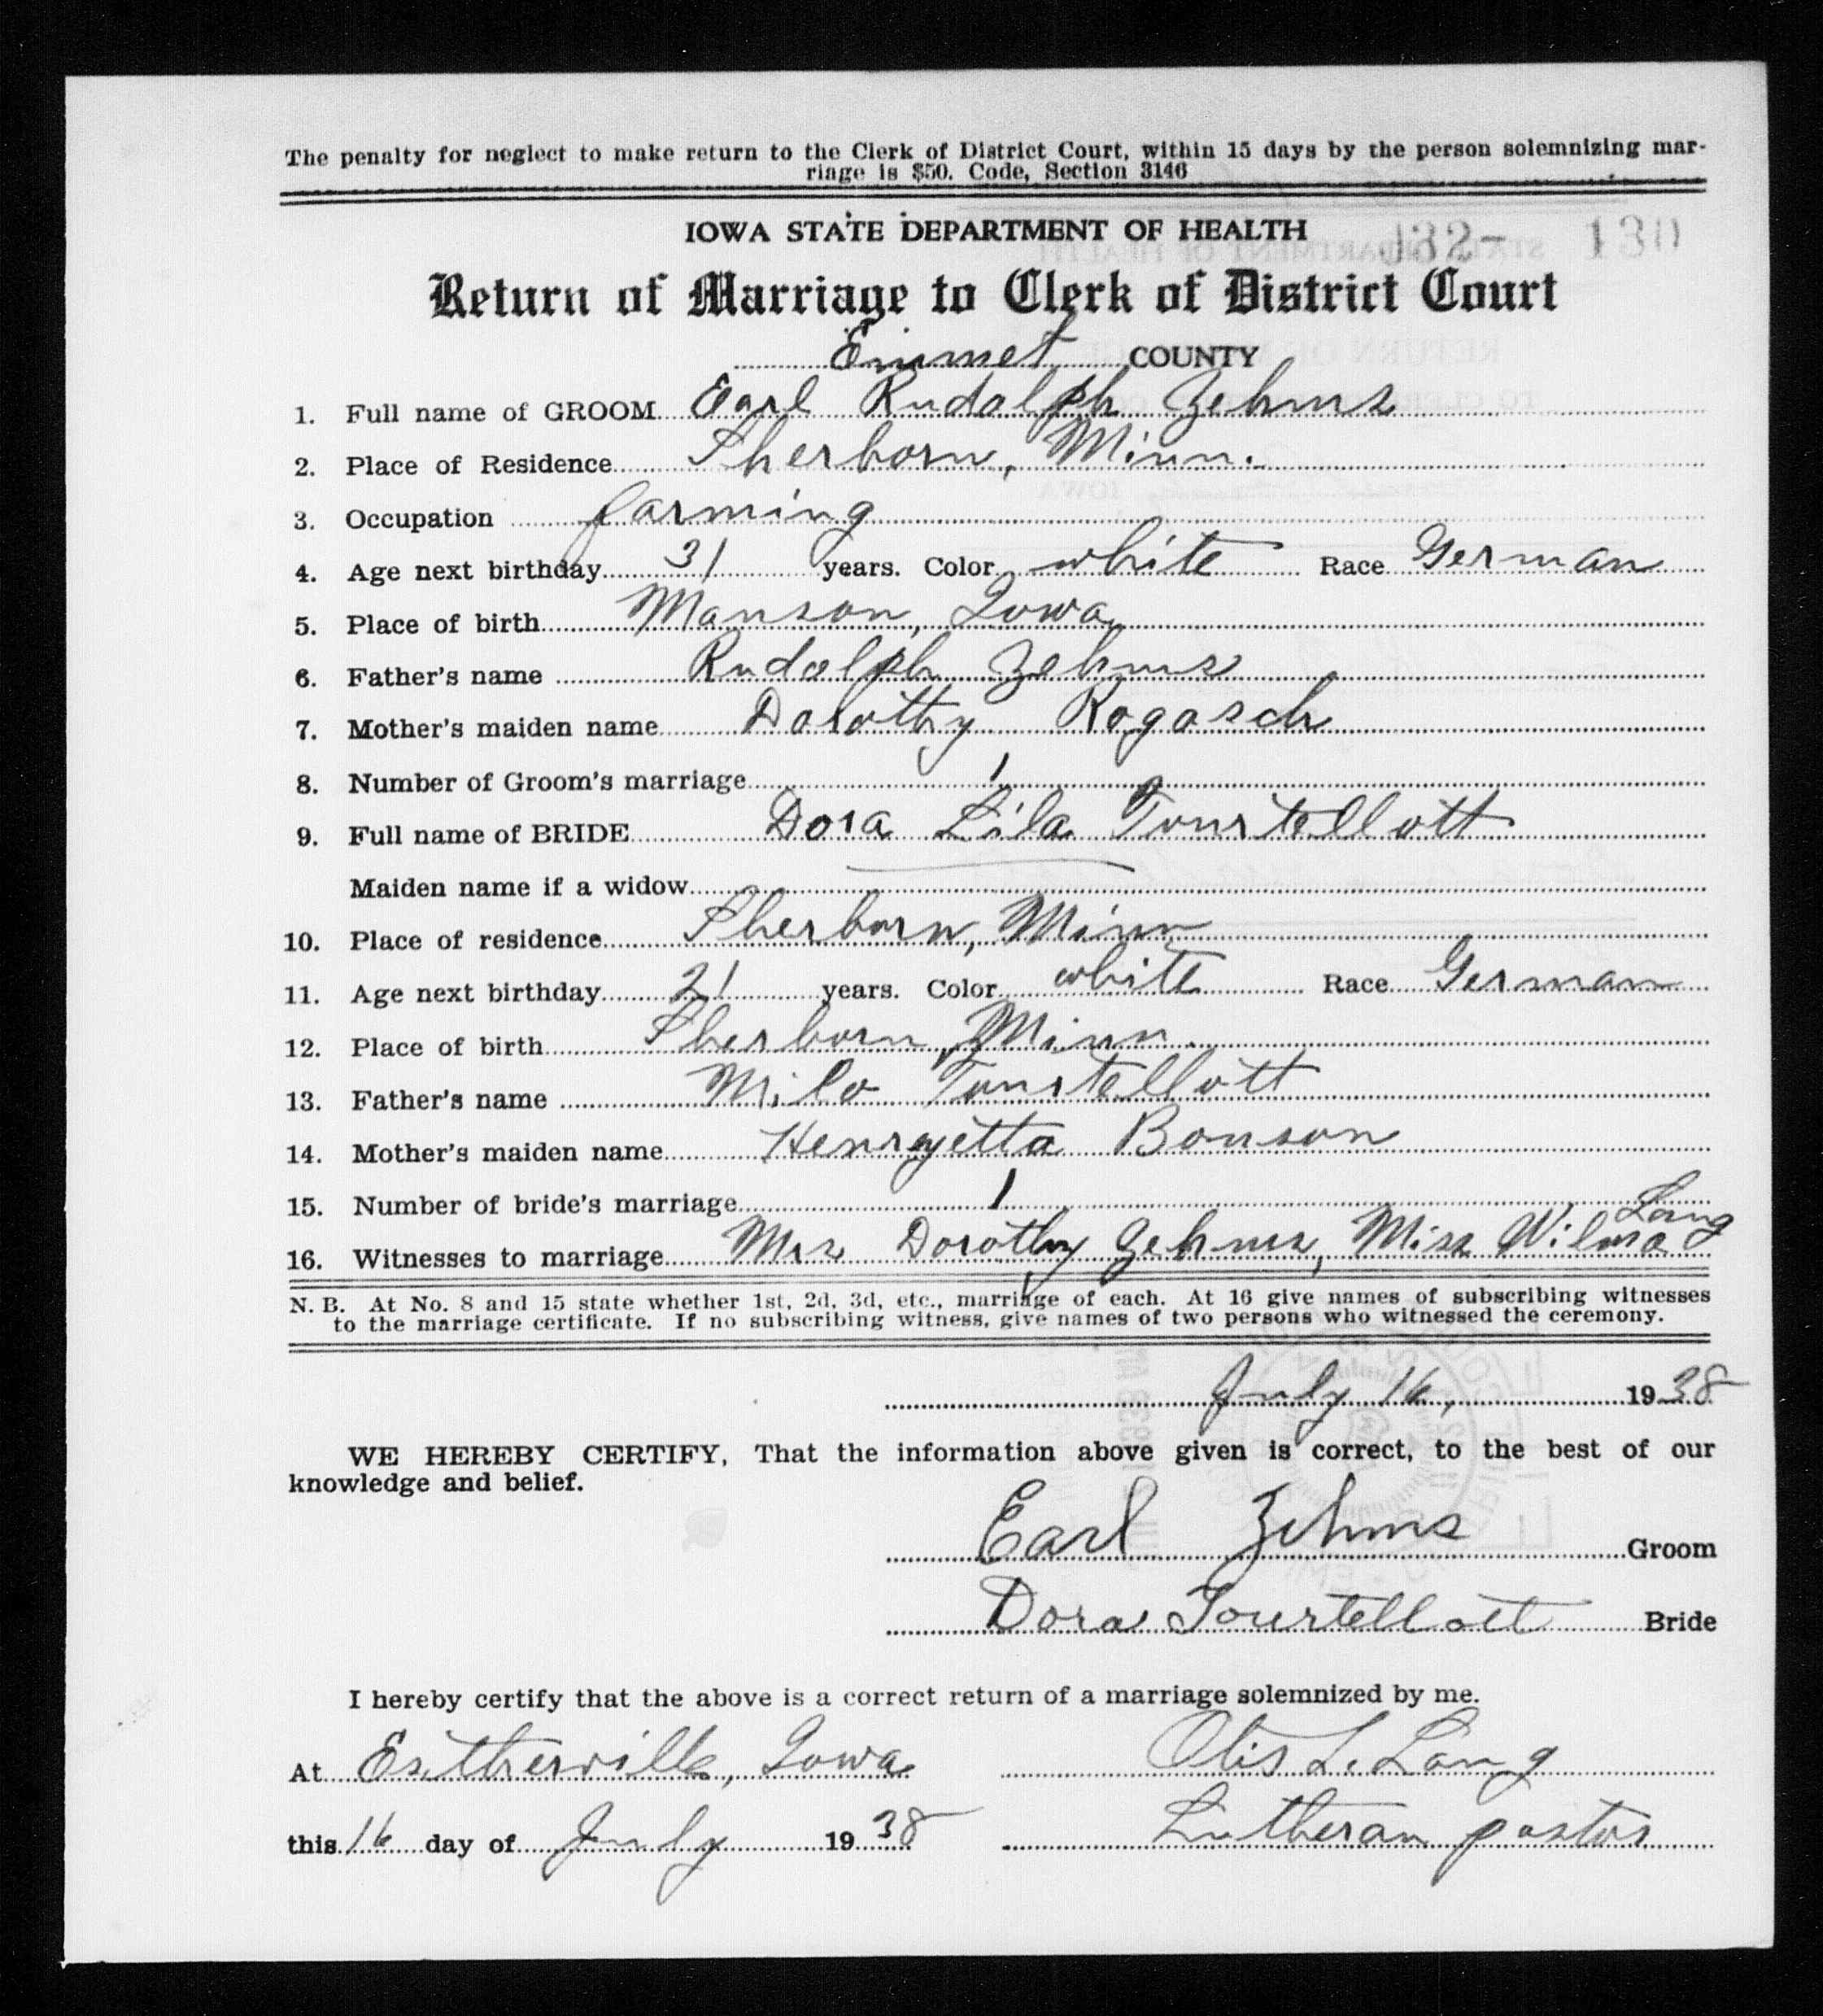 The penalty for neglect to make return to the Clerk of District Court, within 15 days by the person solemnizing mar-
riage is $50. Code, Section 3146
IOWA STATE DEPARTMENT OF HEALTH
132- 130
Return of Marriage to Clerk of District Court
Emmet COUNTY
1. Full name of GROOM Earl Rudolph Zehms
2. Place of Residence Sherborn, Minn.
3. Occupation farming
4. Age next birthday 31 years. Color white Race German
5. Place of birth Manson, Iowa
6. Father's name Rudolph Zehms
7. Mother's maiden name Dorothy Rogosch
8. Number of Groom's marriage 1
9. Full name of BRIDE Dora Lila Tourtellott
Maiden name if a widow
10. Place of residence Sherborn, Minn
11. Age next birthday 21 years. Color white Race German
12. Place of birth Sherborn, Minn.
13. Father's name Milo Tourtellott
14. Mother's maiden name Henryetta Bonson
15. Number of bride's marriage 1
16. Witnesses to marriage Mrs Dorothy Zehms, Miss Wilma Lang
N. B. At No. 8 and 15 state whether 1st, 2d, 3d, etc., marriage of each. At 16 give names of subscribing witnesses
to the marriage certificate. If no subscribing witness, give names of two persons who witnessed the ceremony.
July 16, 1938
WE HEREBY CERTIFY, That the information above given is correct, to the best of our
knowledge and belief.
Earl Zehms Groom
Dora Tourtellott Bride
I hereby certify that the above is a correct return of a marriage solemnized by me.
At Estherville, Iowa Otis L. Lang
this 16 day of July 1938 Lutheran pastor